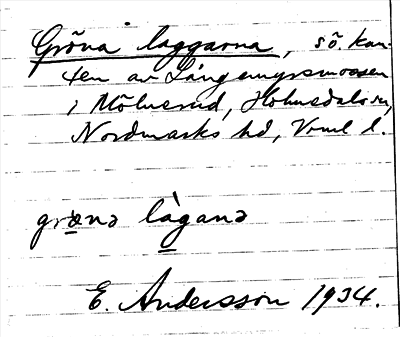 Gröna laggarna, sö. kan-
ten av Långemyrsmossen
i Mölnerud, Holmedals sn,
Nordmarks hd, Vrml l.
grœ̀nə làganə
E. Andersson 1934.